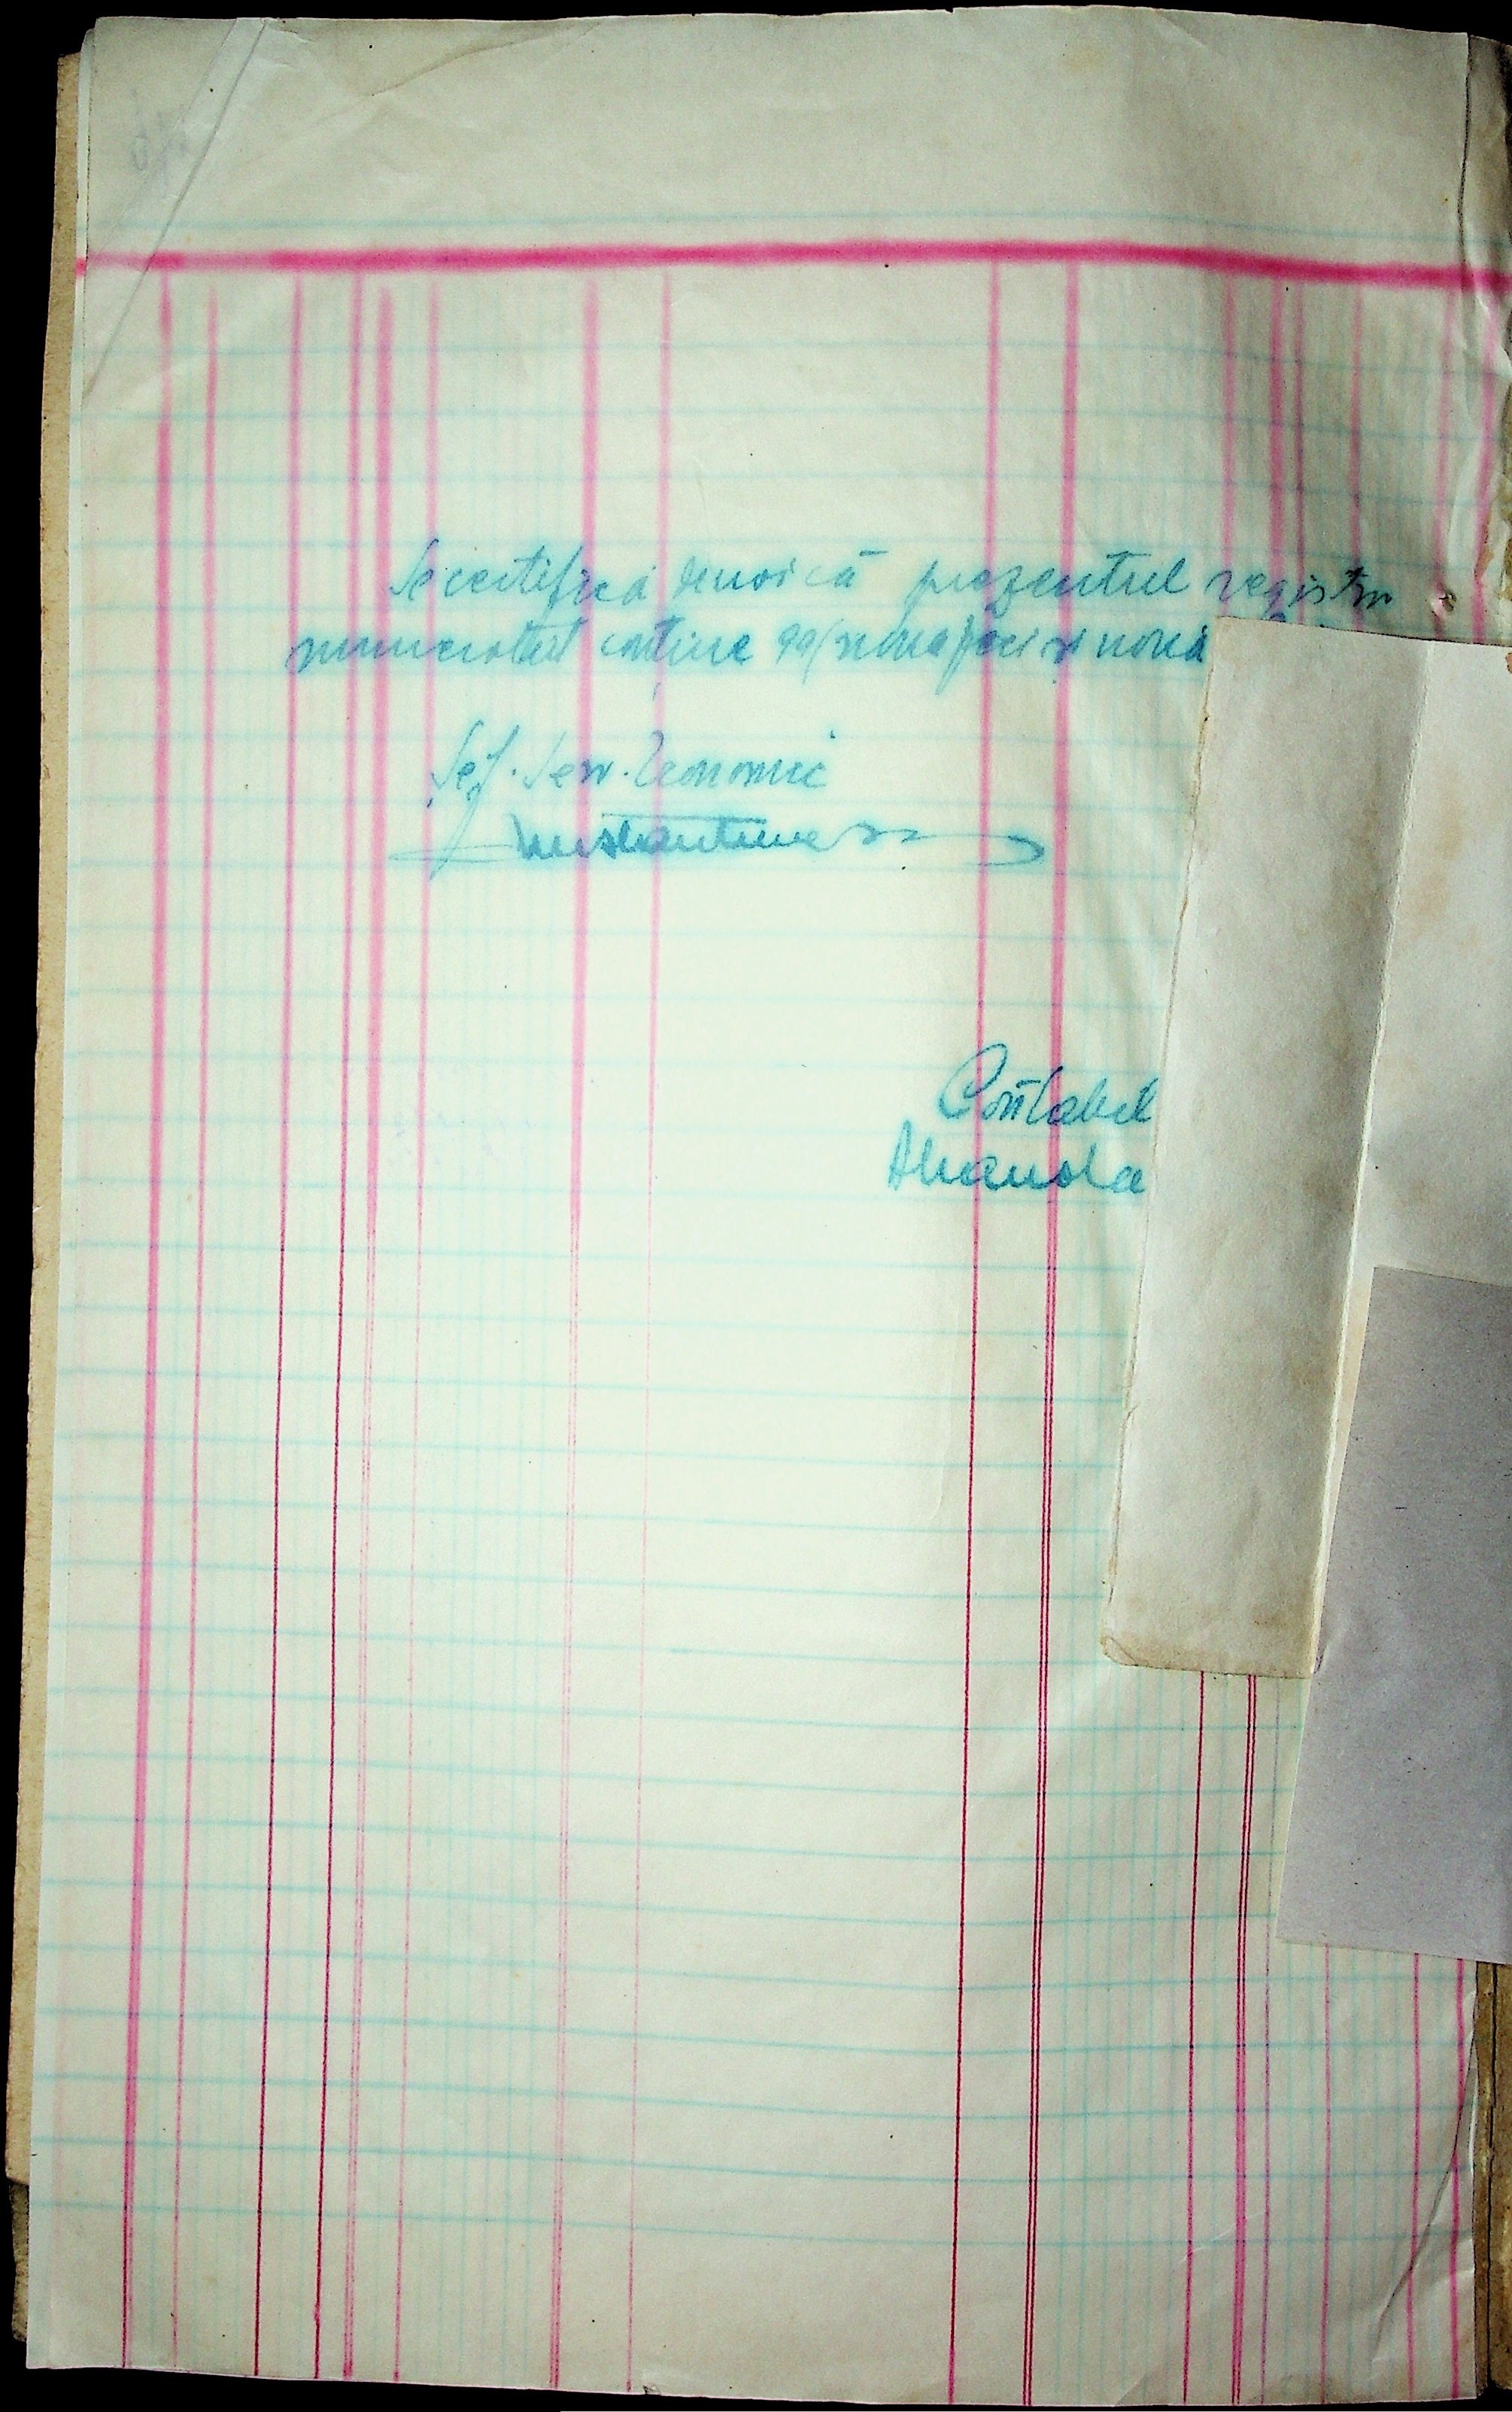 Se certifică de noi că prezentul registru
numerotat conține 99 (nouă zeci și nouă
Șef. Serv. Economic
Contabil